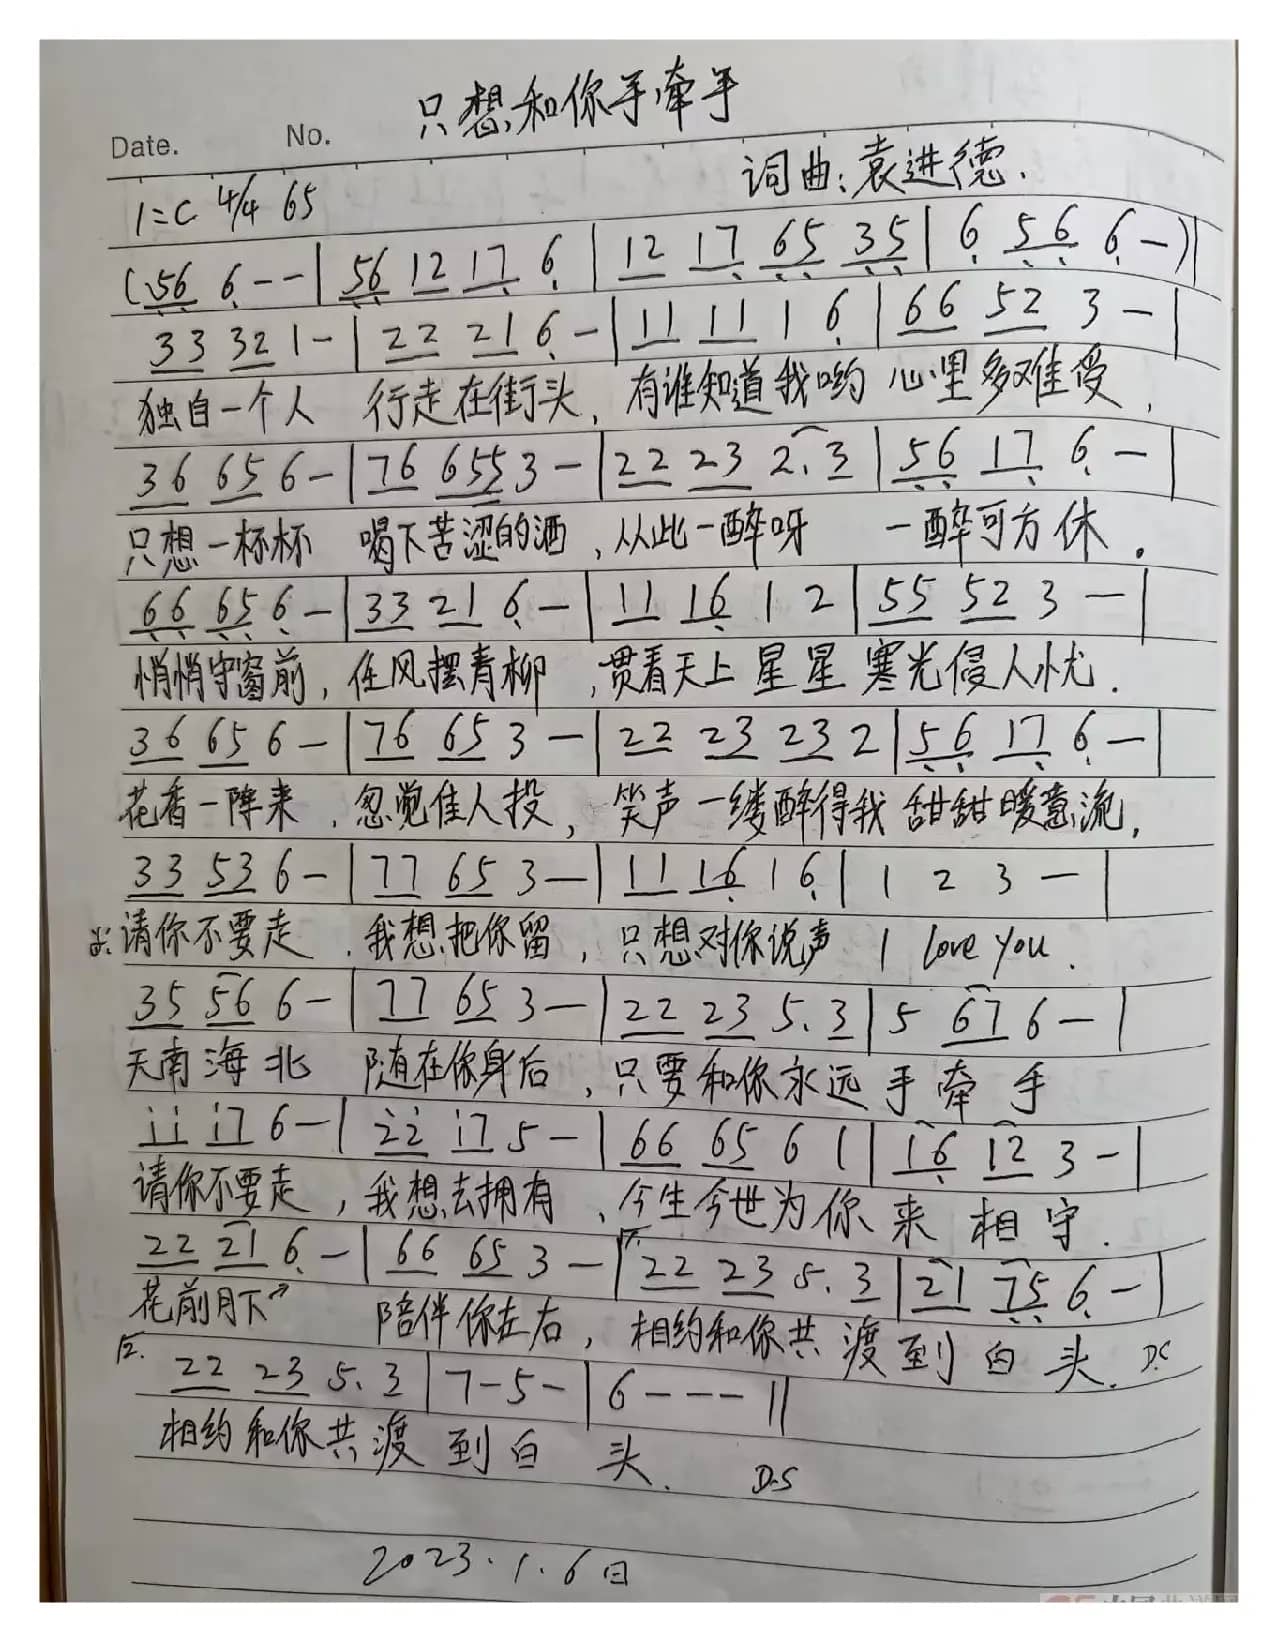 只想和你手牵手
Date.    No.
词曲:袁进德.
1=C 4/4 65
(56 6--|56 12 17 6|12 17 65 35|6 56 6-)|
33 32 1-|22 21 6-|11 11 1 6|66 52 3-|
独自一个人 行走在街头,有谁知道我哟 心里多难受,
36 65 6-|76 655 3-|22 23 2.3|56 17 6-|
只想一杯杯 喝下苦涩的酒,从此一醉呀 一醉可方休.
66 65 6-|33 21 6-|11 16 1 2|55 52 3-|
悄悄守窗前,任风摆青柳,贯看天上星星寒光侵人忧.
36 65 6-|76 65 3-|22 23 23 2|56 17 6-|
花香一阵来,忽觉佳人投,笑声一缕醉得我 甜甜暖意流,
33 53 6-|77 65 3-|11 16 1 6|1 2 3-|
请你不要走,我想把你留,只想对你说声 I love you.
35 56 6-|77 65 3-|22 23 5.3|5 67 6-|
天南海北 随在你身后,只要和你永远手牵手
ii i7 6-|22 i7 5-|66 65 6 1|16 12 3-|
请你不要走,我想去拥有,今生今世为你来相守.
22 21 6-|66 65 3-|22 23 5.3|21 75 6-|
花前月下 陪伴你左右,相约和你共渡到白头. D.C
2. 22 23 5.3|7-5-|6---||
相约和你共渡到白头. D.S
2023.1.6日